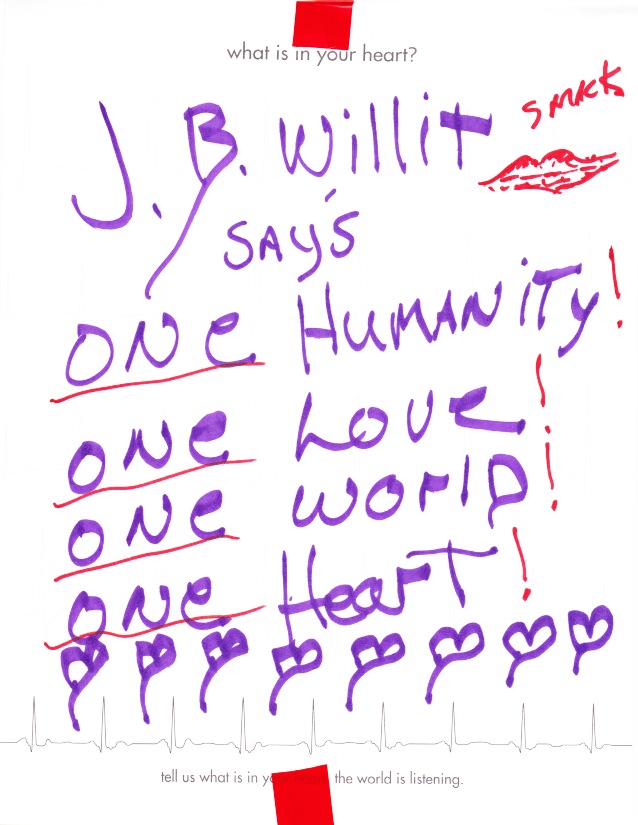 what is in your heart?
SMACK
J. B. Willit
SAYS
ONE HUMANiTy!
ONE LOVE!
ONE WORLD!
ONE HearT!
tell us what is in your heart. the world is listening.